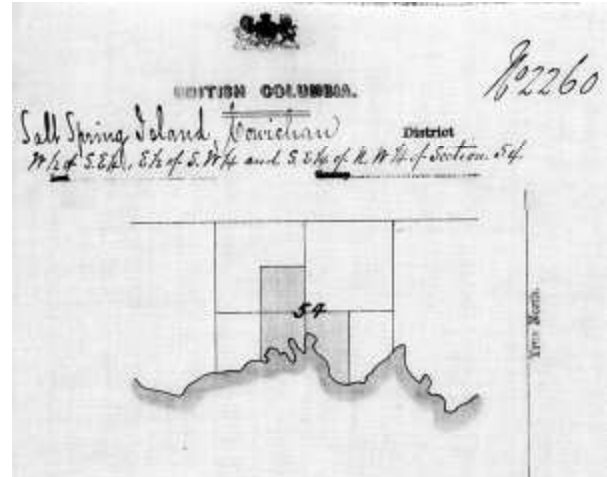 No 2260
BRITISH COLUMBIA.
Salt Spring Island, Cowichan District,
W ½ of S.E¼, E½ of S.W¼ and S.E¼ of N.W¼ of Section 54.
54
True North.